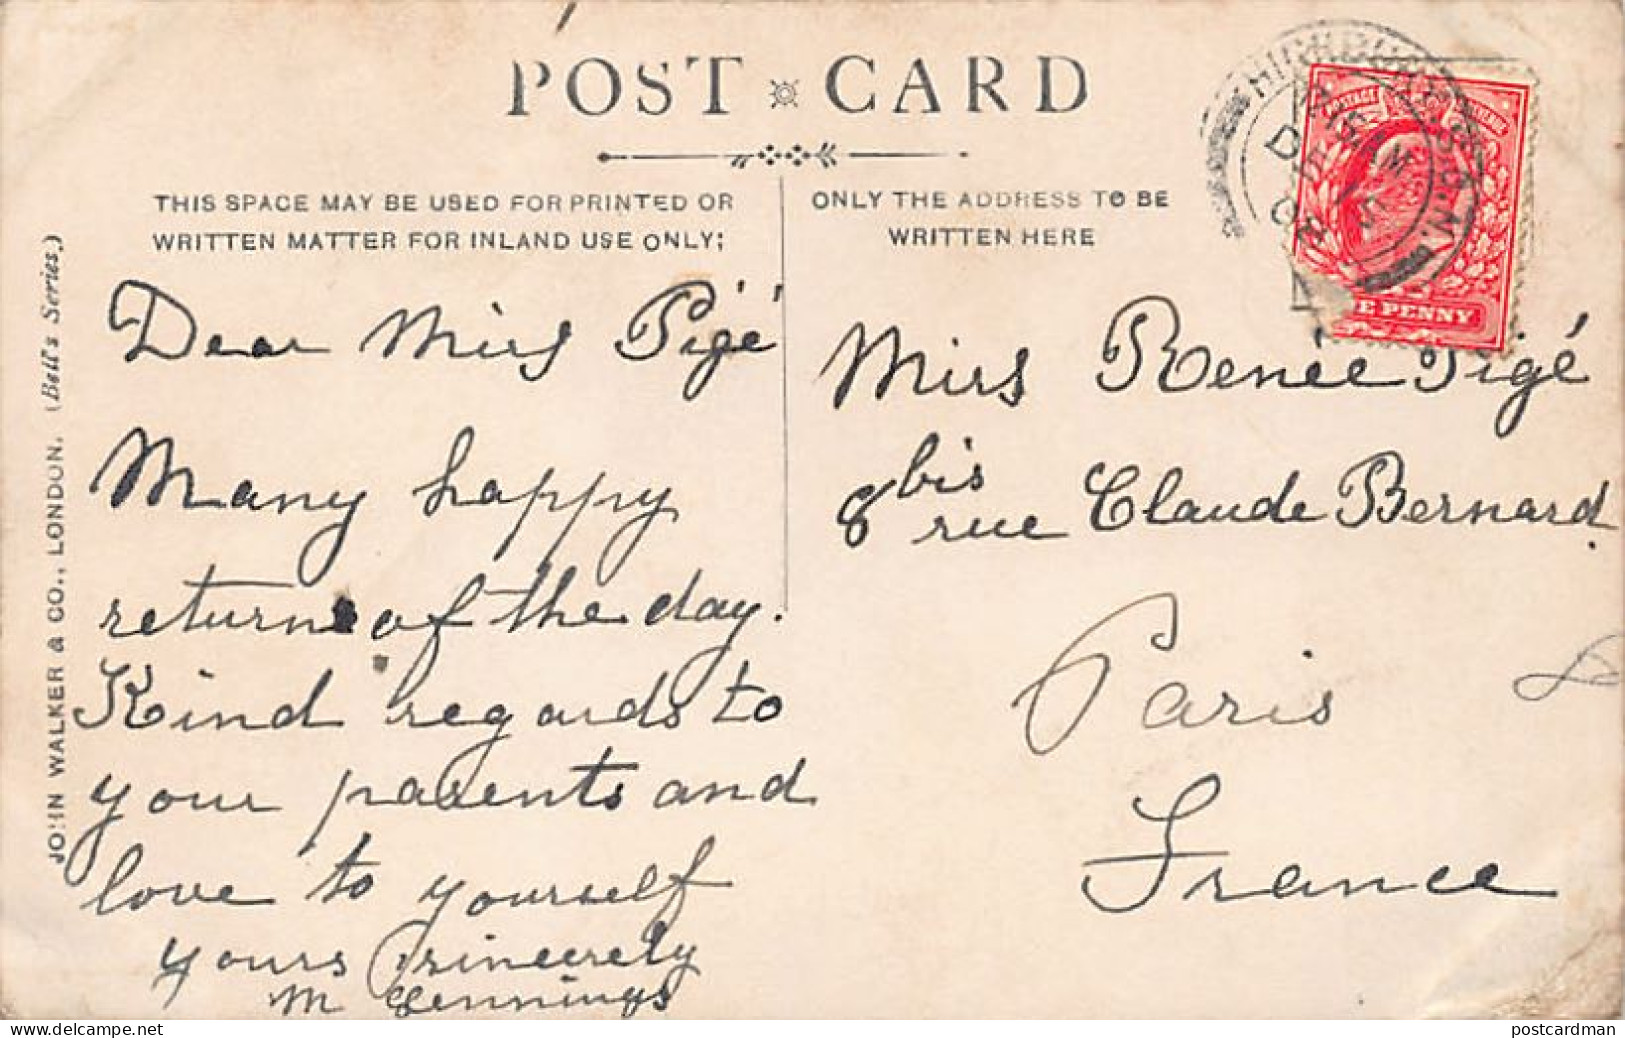 POST CARD
THIS SPACE MAY BE USED FOR PRINTED OR
WRITTEN MATTER FOR INLAND USE ONLY;
ONLY THE ADDRESS TO BE
WRITTEN HERE
JOHN WALKER & CO., LONDON. (Bell's Series.)
Dear Miss Pigé
Many happy
returns of the day.
Kind regards to
your parents and
love to yourself
yours sincerely
M Jennings
Miss Renée Pigé
8 bis rue Claude Bernard.
Paris
France
POSTAGE
E PENNY
postcardman
www.delcampe.net